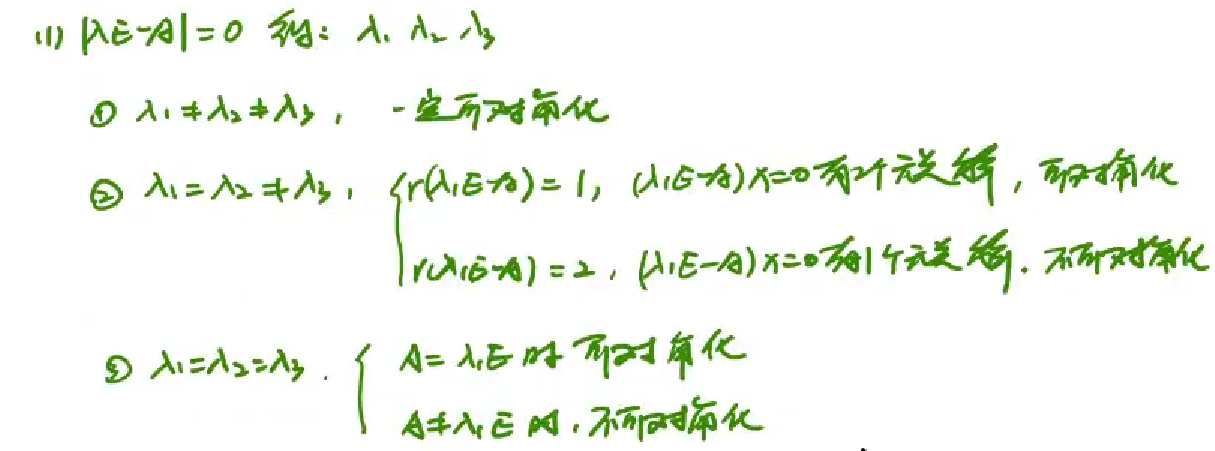 (1) |λE-A|=0 得: λ₁ λ₂ λ₃
① λ₁≠λ₂≠λ₃, 一定可对角化
② λ₁=λ₂≠λ₃, { r(λ₁E-A)=1, (λ₁E-A)x=0有2个无关解, 可对角化
r(λ₁E-A)=2, (λ₁E-A)x=0有1个无关解. 不可对角化
③ λ₁=λ₂=λ₃. { A=λ₁E时 可对角化
A≠λ₁E时, 不可对角化